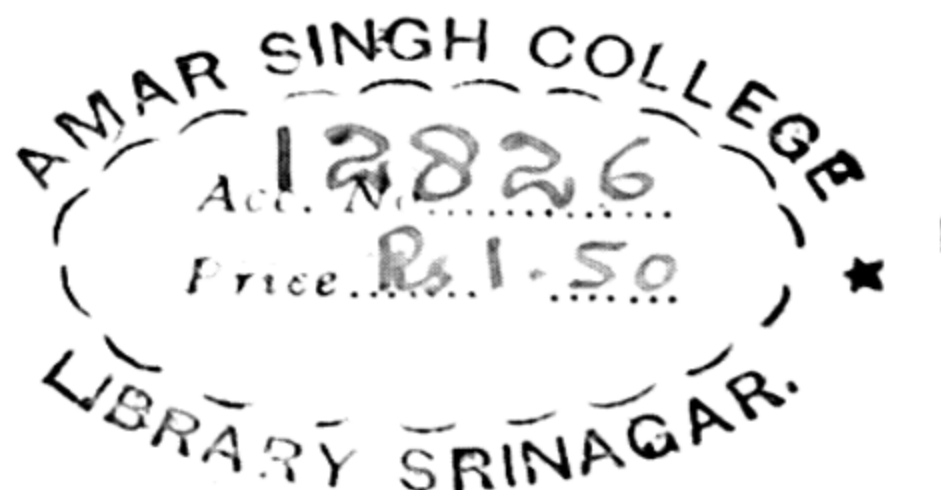 AMAR SINGH COLLEGE
Acc. No. 12826
Price Rs 1.50
LIBRARY SRINAGAR.